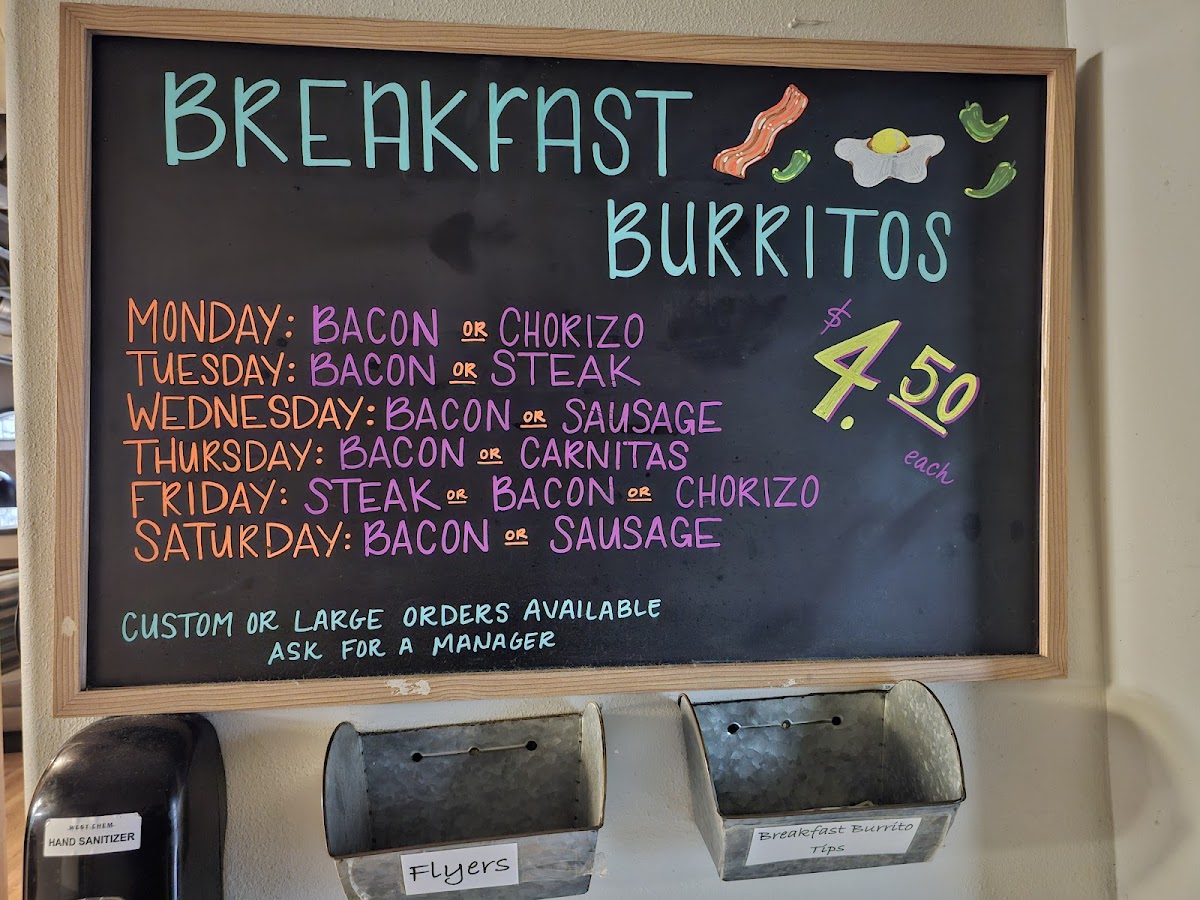 BREAKFAST
BURRITOS
MONDAY: BACON OR CHORIZO
TUESDAY: BACON OR STEAK
WEDNESDAY: BACON OR SAUSAGE
THURSDAY: BACON OR CARNITAS
FRIDAY: STEAK OR BACON OR CHORIZO
SATURDAY: BACON OR SAUSAGE
$4.50
each
CUSTOM OR LARGE ORDERS AVAILABLE
ASK FOR A MANAGER
WEST CHEM
HAND SANITIZER
Flyers
Breakfast Burrito
Tips